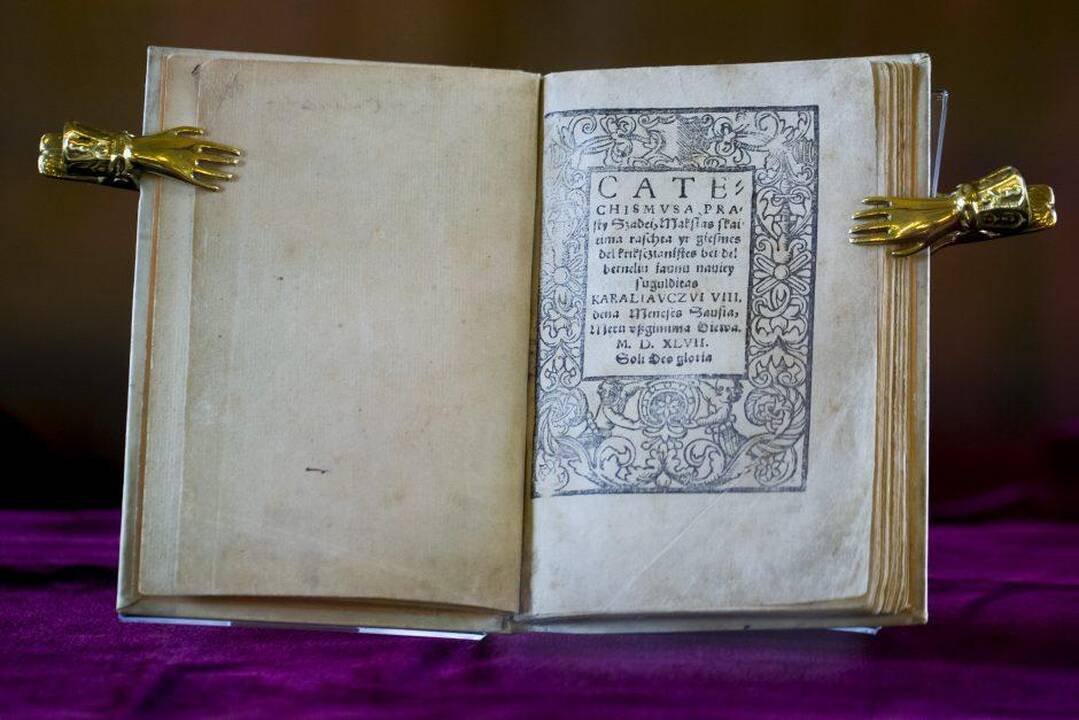 CATE⸗
CHISMVSA PRA⸗
sty Szadei, Makslas skai⸗
tima raschta yr giesmes
del kriksczianistes bei del
berneliu iaunu nauiey
suguldytas
KARALIAVCZVI VIII.
dena Meneses Sausia,
Metu vßgimima Diewa.
M. D. XLVII.
Soli Deo gloria